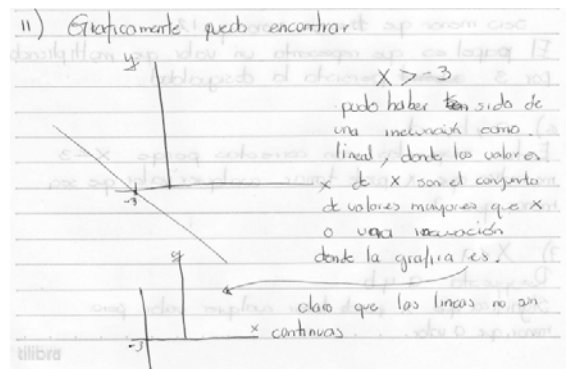 11) Graficamente puedo encontrar
y
X > -3
pudo haber sido de
una inecuación como
lineal, donde los valores
x de x son el conjunto
-3
de valores mayores que x
o una inecuación
donde la grafica es.
y
claro que las lineas no son
x continuas
-3
tilibra